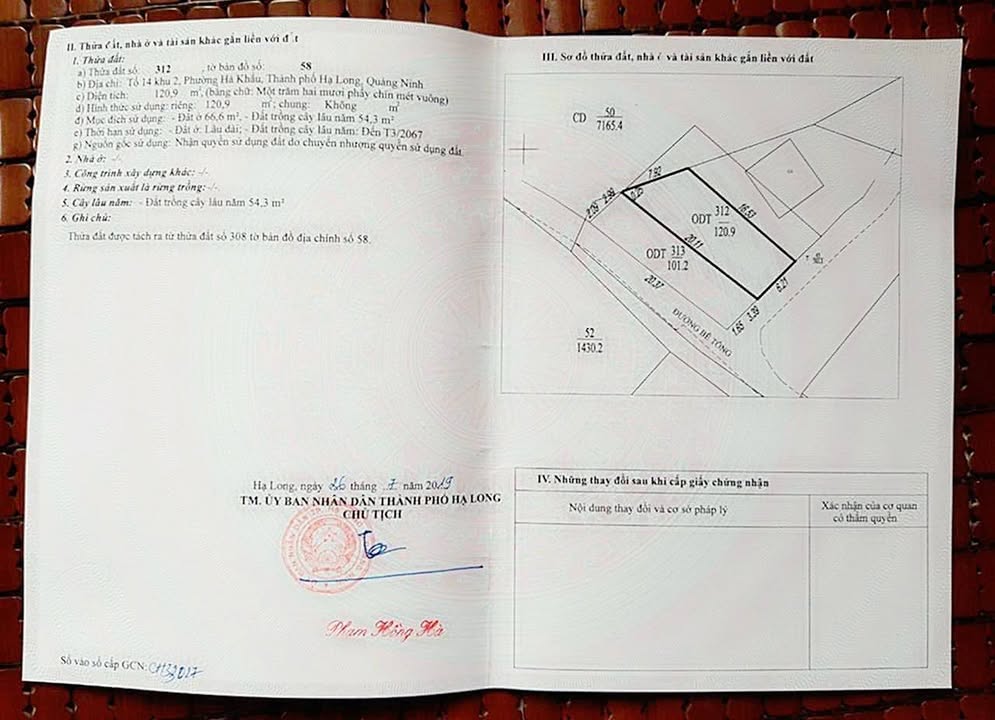 II. Thửa đất, nhà ở và tài sản khác gắn liền với đất
1. Thửa đất:
a) Thửa đất số: 312 , tờ bản đồ số: 58
b) Địa chỉ: Tổ 14 khu 2, Phường Hà Khẩu, Thành phố Hạ Long, Quảng Ninh
c) Diện tích: 120,9 m², (bằng chữ: Một trăm hai mươi phẩy chín mét vuông)
d) Hình thức sử dụng: riêng: 120,9 m²; chung: Không m²
đ) Mục đích sử dụng: - Đất ở 66,6 m², - Đất trồng cây lâu năm 54,3 m²
e) Thời hạn sử dụng: - Đất ở: Lâu dài; - Đất trồng cây lâu năm: Đến T3/2067
g) Nguồn gốc sử dụng: Nhận quyền sử dụng đất do chuyển nhượng quyền sử dụng đất
2. Nhà ở: -/-
3. Công trình xây dựng khác: -/-
4. Rừng sản xuất là rừng trồng: -/-
5. Cây lâu năm: - Đất trồng cây lâu năm 54,3 m²
6. Ghi chú:
Thửa đất được tách ra từ thửa đất số 308 tờ bản đồ địa chính số 58.
Hạ Long, ngày 26 tháng 7 năm 2019
TM. ỦY BAN NHÂN DÂN THÀNH PHỐ HẠ LONG
CHỦ TỊCH
Phạm Hồng Hà
Số vào sổ cấp GCN: CH32017
III. Sơ đồ thửa đất, nhà ở và tài sản khác gắn liền với đất
CD 50
7165.4
7.92
2.09 2.98 0.20
16.57
ODT 312
120.9
20.11
ODT 313
101.2
20.37
6.21
1.65 3.39
ĐƯỜNG BÊ TÔNG
52
1430.2
IV. Những thay đổi sau khi cấp giấy chứng nhận
Nội dung thay đổi và cơ sở pháp lý
Xác nhận của cơ quan
có thẩm quyền